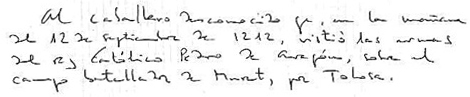 Al caballero desconocido qe, en la mañana
del 12 de septiembre de 1212, vistió las armas
del rey Católico Pedro de Aragón, sobre el
campo batallador de Muret, por Tolosa.